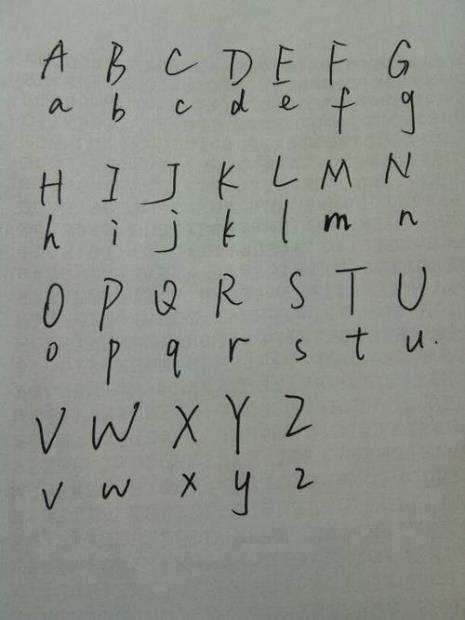 A B C D E F G
a b c d e f g
H I J K L M N
h i j k l m n
O P Q R S T U
o p q r s t u.
V W X Y Z
v w x y z